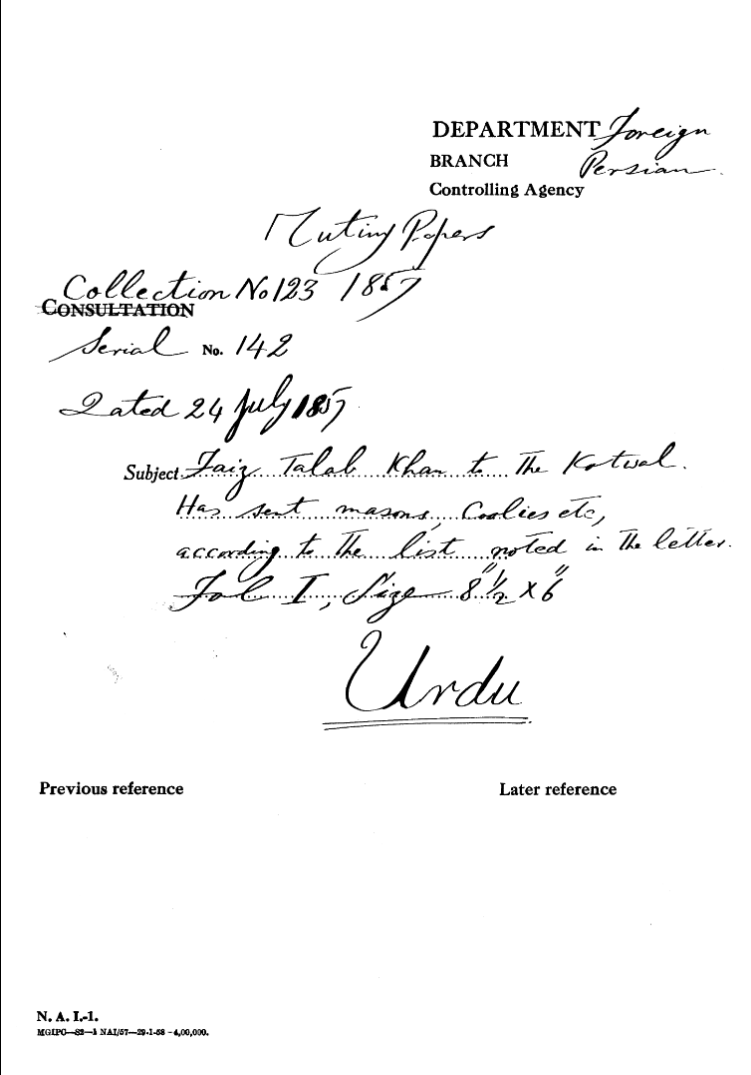 DEPARTMENT Foreign
BRANCH Persian
Controlling Agency
Mutiny Papers
Collection No 123 1857
CONSULTATION
Serial No. 142
Dated 24 July 1857
Subject Faiz Talab Khan to the Kotwal.
Has sent masons, Coolies etc,
according to the list noted in the letter.
Fol I, Size 8½" x 6"
Urdu
Previous reference
Later reference
N. A. I.-1.
MGIPC—S2—1 NAI/57—29-1-58—4,00,000.